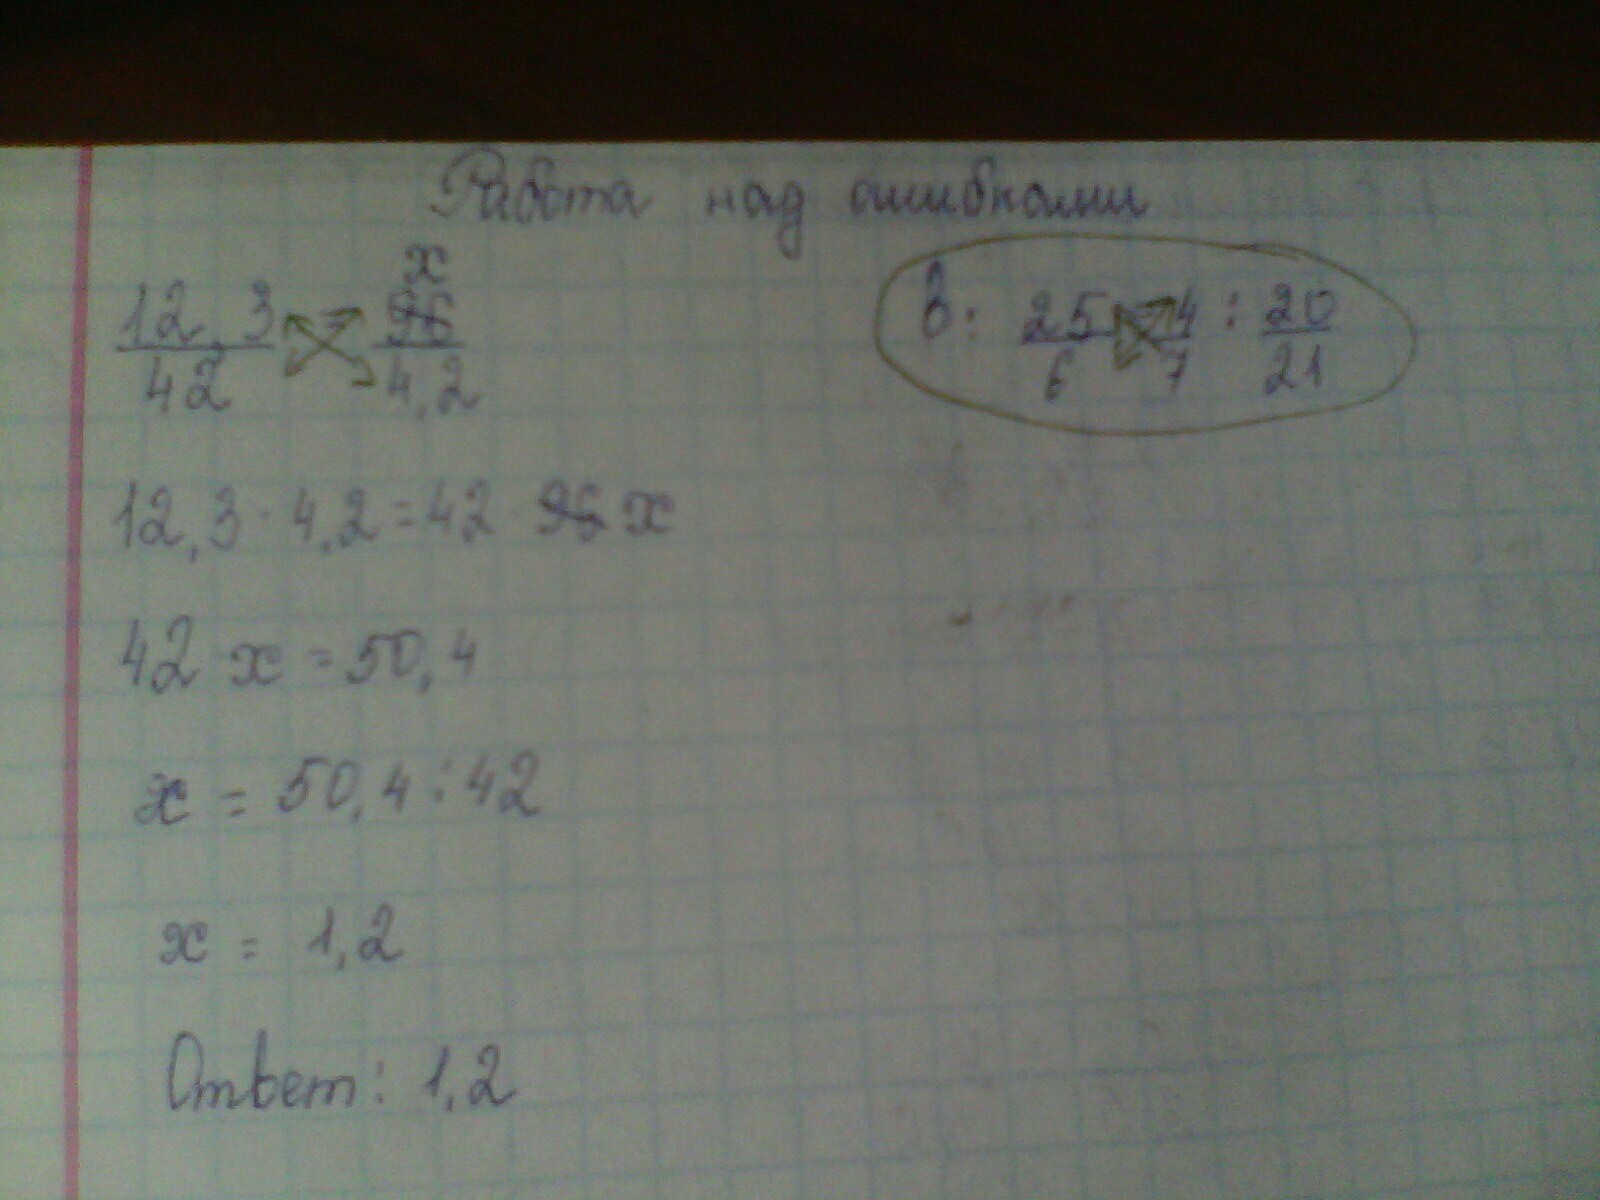 Работа над ошибками
12,3/42 = x/4,2
в: 25/6 = 4/7 : 20/21
12,3 · 4,2 = 42 x
42 x = 50,4
x = 50,4 : 42
x = 1,2
Ответ: 1,2